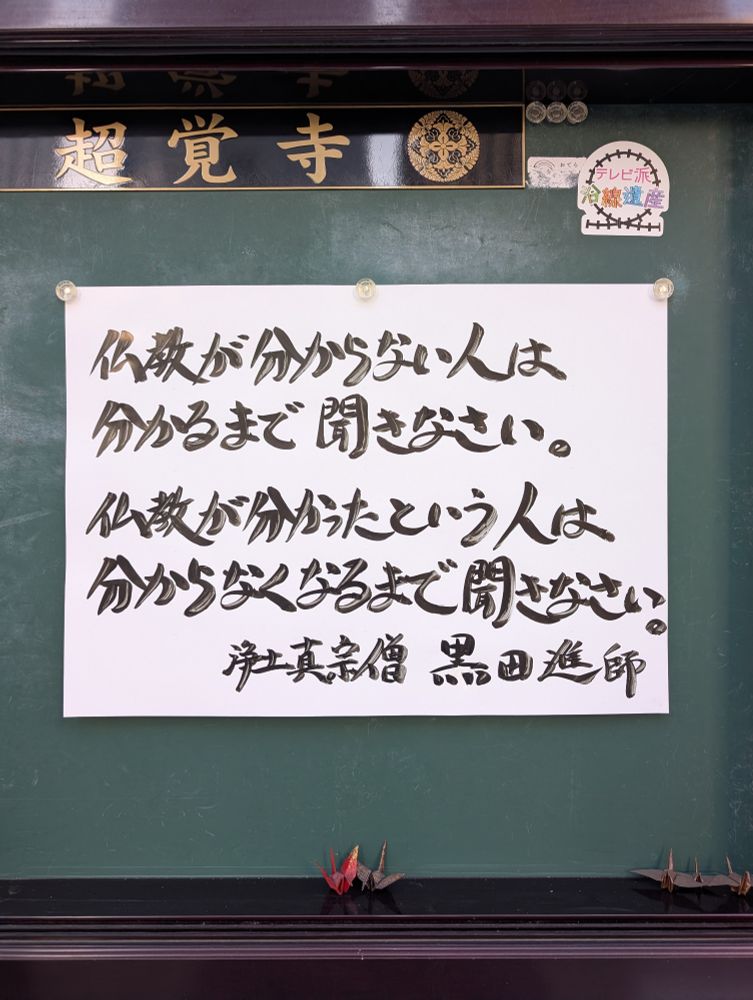 超覚寺
テレビ派
沿線遺産
仏教が分からない人は
分かるまで聞きなさい。
仏教が分かったという人は
分からなくなるまで聞きなさい。
浄土真宗僧 黒田進師